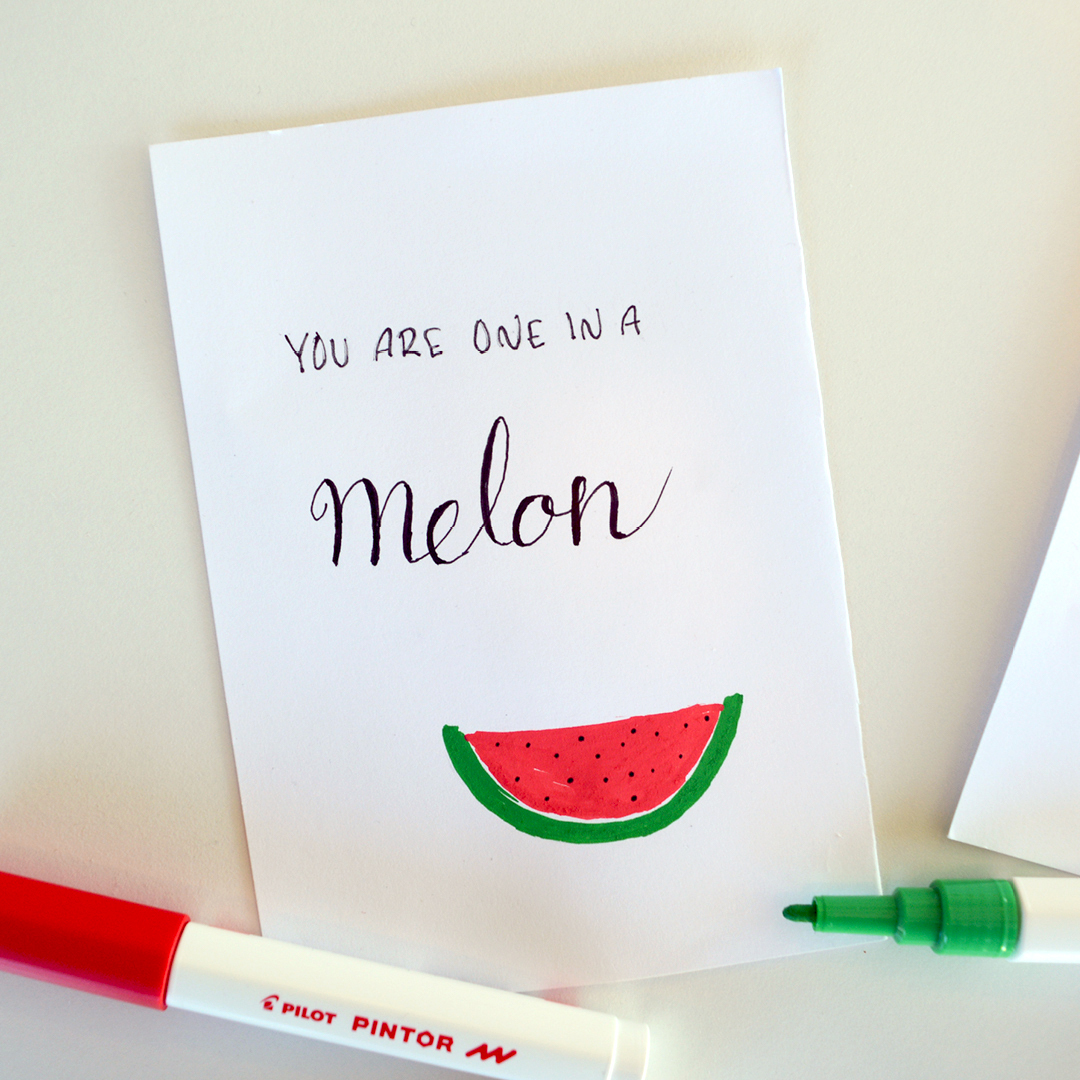 YOU ARE ONE IN A
Melon
PILOT PINTOR M